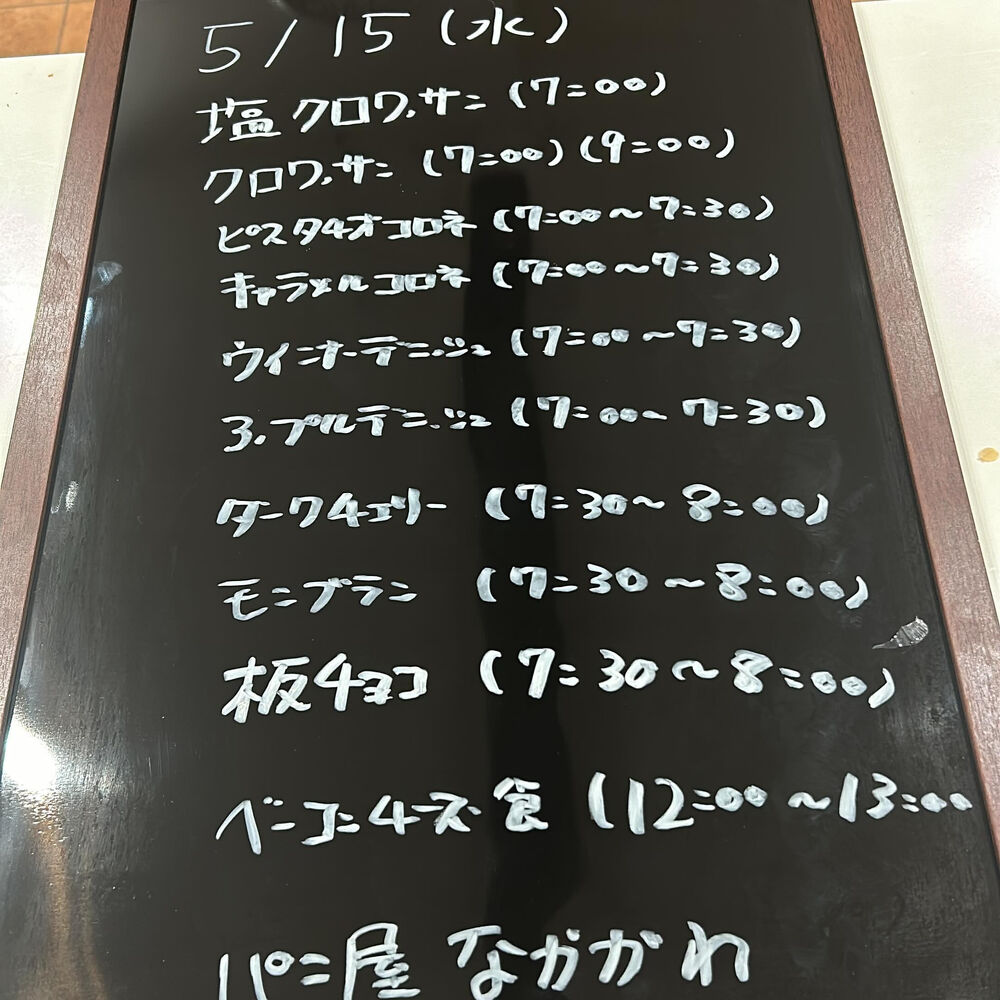 5/15(水)
塩クロワッサン (7:00)
クロワッサン (7:00)(9:00)
ピスタチオコロネ (7:00~7:30)
キャラメルコロネ (7:00~7:30)
ウィンナーデニッシュ (7:00~7:30)
3.プルデニッシュ (7:00~7:30)
ダークチェリー (7:30~8:00)
モンブラン (7:30~8:00)
板チョコ (7:30~8:00)
ベーコンチーズ食 (12:00~13:00
パン屋 なかがわ